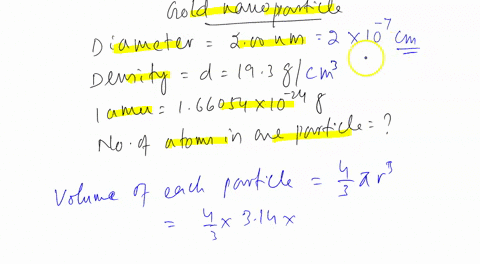 Gold nanoparticle
Diameter = 2.00 nm = 2 × 10⁻⁷ cm
Density = d = 19.3 g/cm³
1 amu = 1.66054 × 10⁻²⁴ g
No. of atoms in one particle = ?
Volume of each particle = 4/3 π r³
= 4/3 × 3.14 ×